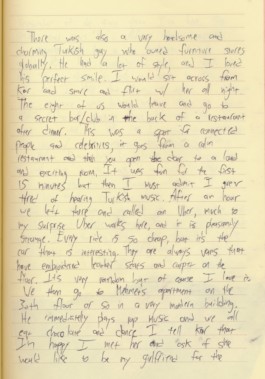 There was also a very handsome and
charming Turkish guy who owned furniture stores
globally. He had a lot of style, and I loved
his perfect smile. I would sit across from
Kar and smile and flirt w/ her all night.
The eight of us would leave and go to
a secret bar/club in the back of a restaurant
after dinner. This was a spot for connected
people and celebrities, it goes from a calm
restaurant and then you open the door to a loud
and exciting room. It was fun for the first
15 minutes but then I must admit I grew
tired of hearing Turkish music. After an hour
we left there and called an Uber, much to
my surprise Uber works here, and it is pleasantly
strange. Every ride is so cheap, but it's the
car that is interesting. They are always vans that
have embroidered leather seats and carpet on the
floor. It's very random but of course I love it.
We then go to apartment on the
30th floor or so in a very modern building.
He immediately plays pop music and we all
eat chocolate and dance. I tell Kar that
I'm happy I met her and ask if she
would like to be my girlfriend for the